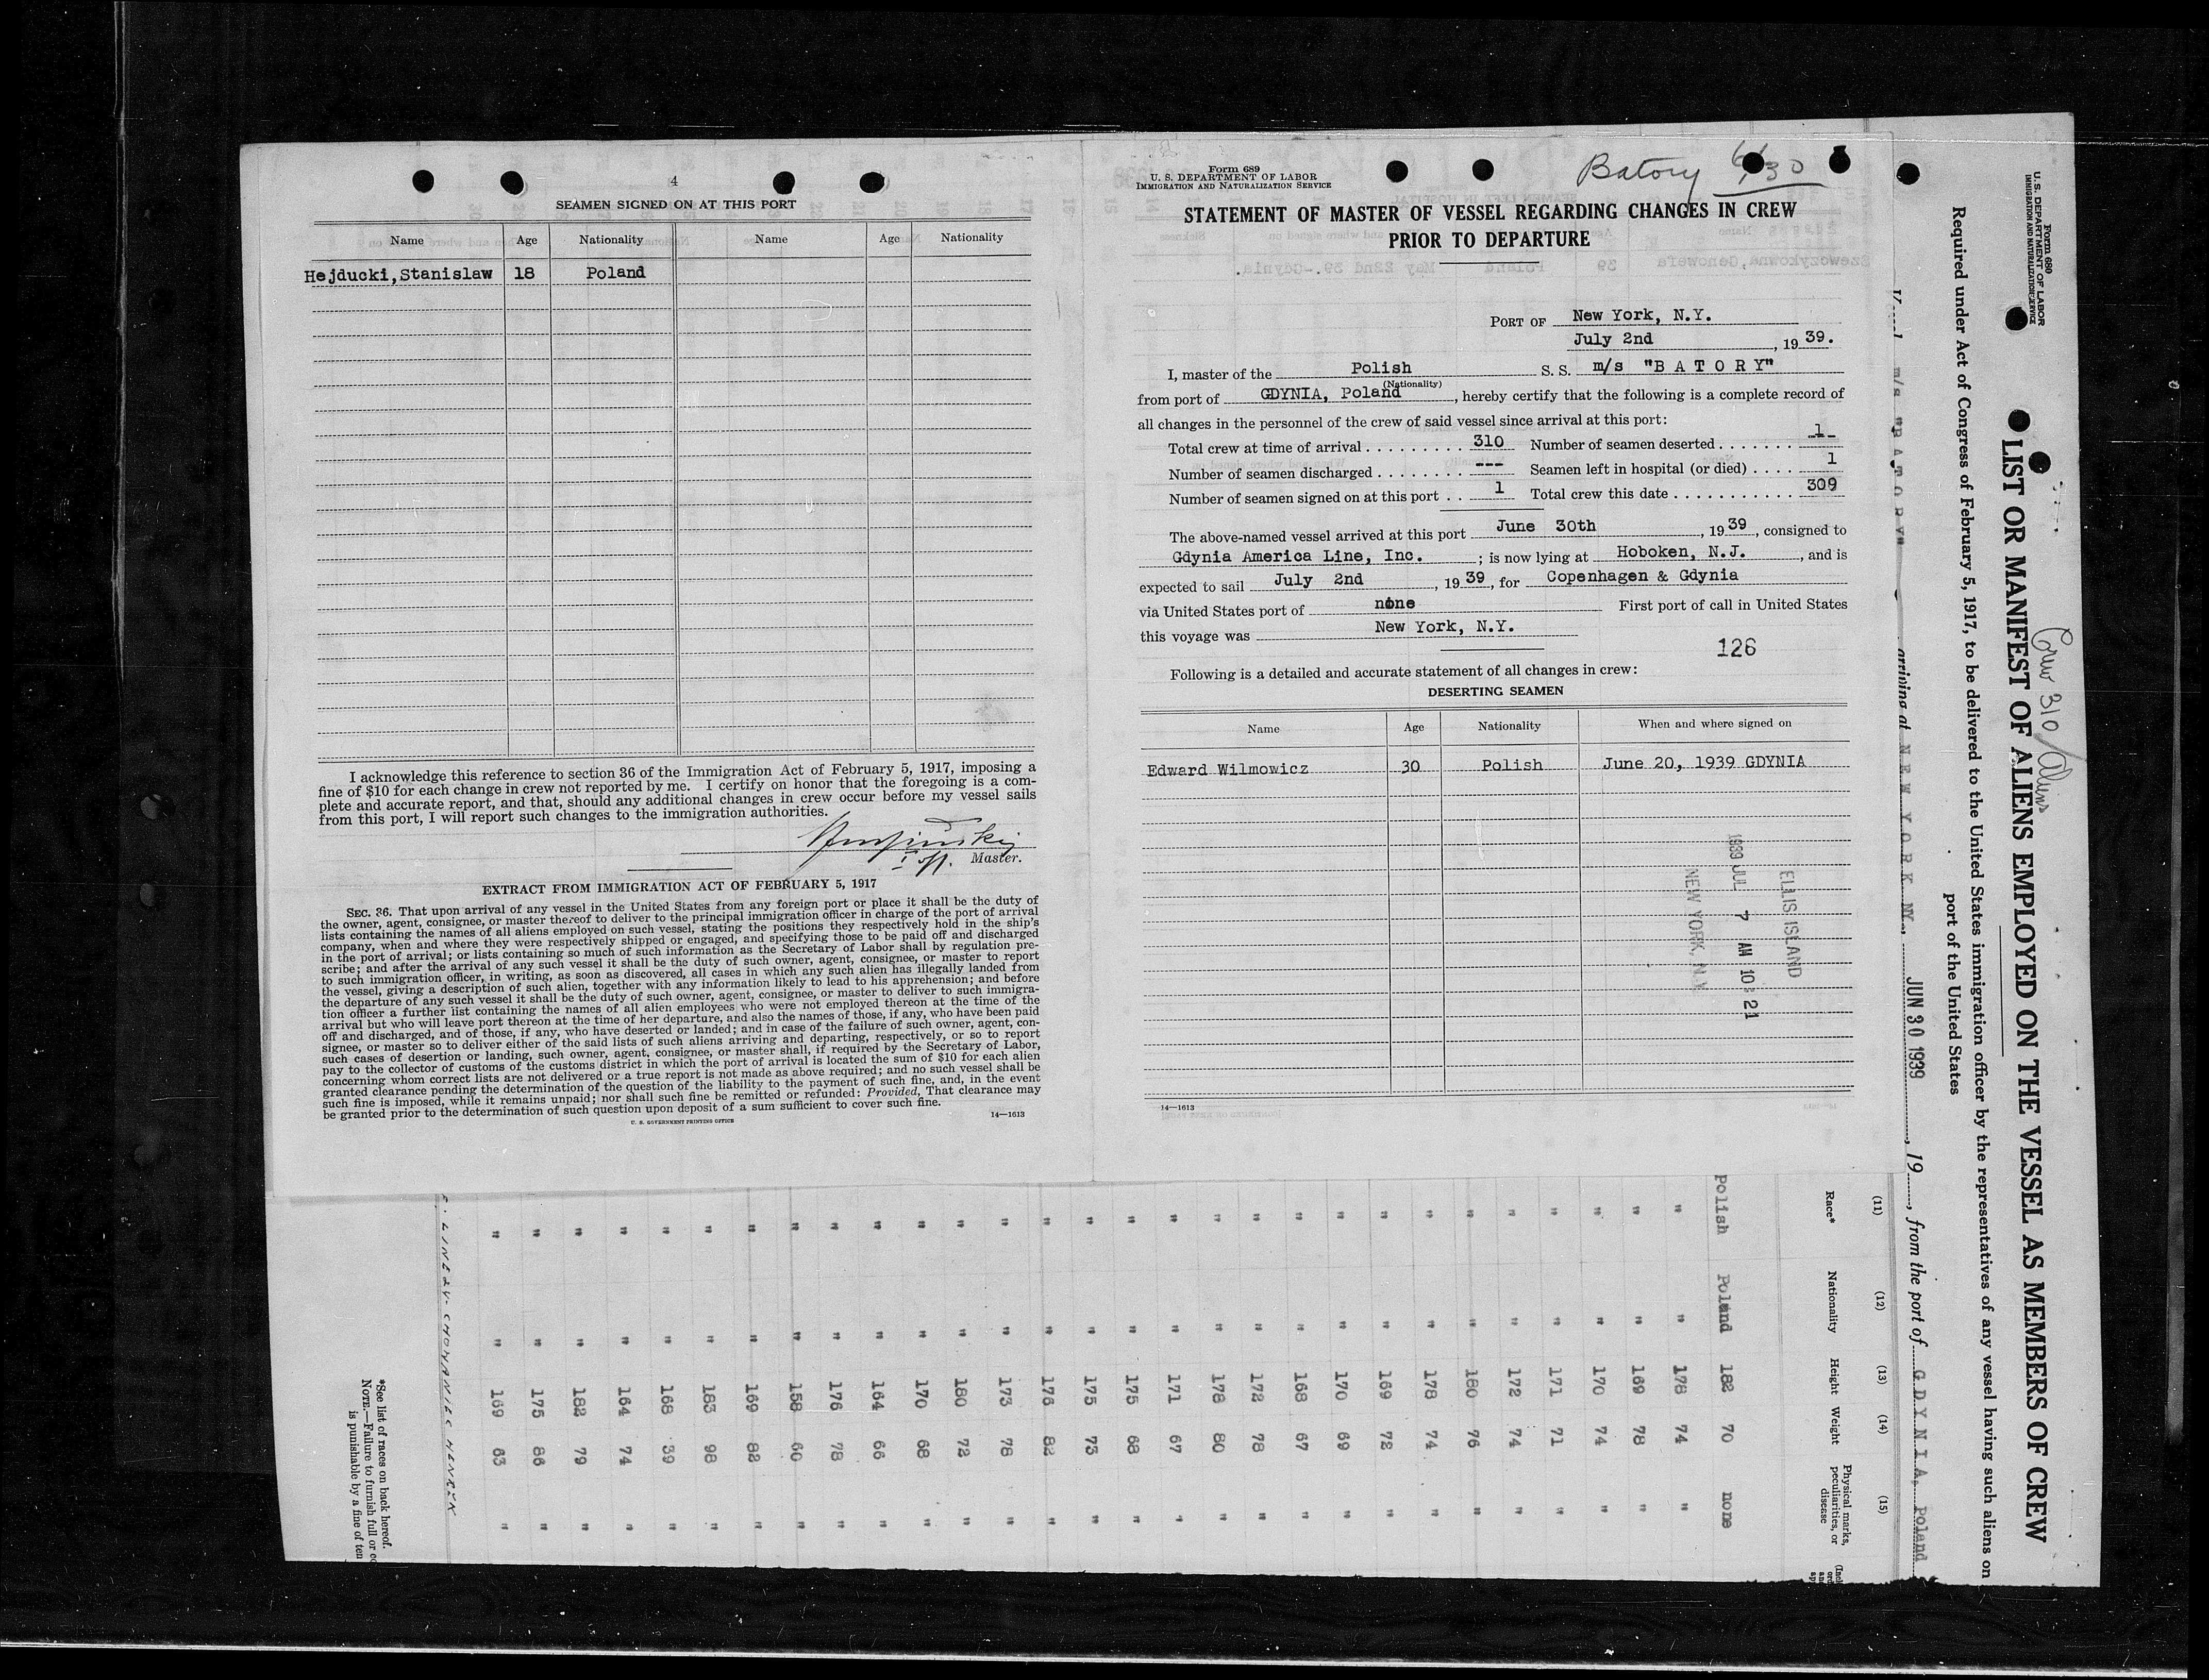 4
SEAMEN SIGNED ON AT THIS PORT
Name Age Nationality Name Age Nationality
Hejducki,Stanislaw 18 Poland
I acknowledge this reference to section 36 of the Immigration Act of February 5, 1917, imposing a
fine of $10 for each change in crew not reported by me. I certify on honor that the foregoing is a com-
plete and accurate report, and that, should any additional changes in crew occur before my vessel sails
from this port, I will report such changes to the immigration authorities.
Master.
EXTRACT FROM IMMIGRATION ACT OF FEBRUARY 5, 1917
SEC. 36. That upon arrival of any vessel in the United States from any foreign port or place it shall be the duty of
the owner, agent, consignee, or master thereof to deliver to the principal immigration officer in charge of the port of arrival
lists containing the names of all aliens employed on such vessel, stating the positions they respectively hold in the ship's
company, when and where they were respectively shipped or engaged, and specifying those to be paid off and discharged
in the port of arrival; or lists containing so much of such information as the Secretary of Labor shall by regulation pre-
scribe; and after the arrival of any such vessel it shall be the duty of such owner, agent, consignee, or master to report
to such immigration officer, in writing, as soon as discovered, all cases in which any such alien has illegally landed from
the vessel, giving a description of such alien, together with any information likely to lead to his apprehension; and before
the departure of any such vessel it shall be the duty of such owner, agent, consignee, or master to deliver to such immigra-
tion officer a further list containing the names of all alien employees who were not employed thereon at the time of the
arrival but who will leave port thereon at the time of her departure, and also the names of those, if any, who have been paid
off and discharged, and of those, if any, who have deserted or landed; and in case of the failure of such owner, agent, con-
signee, or master so to deliver either of the said lists of such aliens arriving and departing, respectively, or so to report
such cases of desertion or landing, such owner, agent, consignee, or master shall, if required by the Secretary of Labor,
pay to the collector of customs of the customs district in which the port of arrival is located the sum of $10 for each alien
concerning whom correct lists are not delivered or a true report is not made as above required; and no such vessel shall be
granted clearance pending the determination of the question of the liability to the payment of such fine, and, in the event
such fine is imposed, while it remains unpaid; nor shall such fine be remitted or refunded: Provided, That clearance may
be granted prior to the determination of such question upon deposit of a sum sufficient to cover such fine.
14—1613
U. S. GOVERNMENT PRINTING OFFICE
Form 689
U. S. DEPARTMENT OF LABOR
IMMIGRATION AND NATURALIZATION SERVICE
Batory 6/30
STATEMENT OF MASTER OF VESSEL REGARDING CHANGES IN CREW
PRIOR TO DEPARTURE
PORT OF New York, N.Y.
July 2nd, 1939.
I, master of the Polish S. S. m/s "B A T O R Y"
(Nationality)
from port of GDYNIA, Poland, hereby certify that the following is a complete record of
all changes in the personnel of the crew of said vessel since arrival at this port:
Total crew at time of arrival ......... 310 Number of seamen deserted ........ 1
Number of seamen discharged ........ --- Seamen left in hospital (or died) .... 1
Number of seamen signed on at this port .. 1 Total crew this date ........... 309
The above-named vessel arrived at this port June 30th, 1939, consigned to
Gdynia America Line, Inc. ; is now lying at Hoboken, N.J., and is
expected to sail July 2nd, 1939, for Copenhagen & Gdynia
via United States port of none First port of call in United States
this voyage was New York, N.Y.
126
Following is a detailed and accurate statement of all changes in crew:
DESERTING SEAMEN
Name Age Nationality When and where signed on
Edward Wilmowicz 30 Polish June 20, 1939 GDYNIA
ELLIS ISLAND
1939 JUL 7 AM 10:21
NEW YORK, N.Y.
14—1613
Form 680
U. S. DEPARTMENT OF LABOR
IMMIGRATION AND NATURALIZATION SERVICE
Crew 310/Aliens
LIST OR MANIFEST OF ALIENS EMPLOYED ON THE VESSEL AS MEMBERS OF CREW
Required under Act of Congress of February 5, 1917, to be delivered to the United States immigration officer by the representatives of any vessel having such aliens on
port of the United States
m/s "B A T O R Y" arriving at N E W Y O R K NY. JUN 30 1939, 19, from the port of G D Y N I A, Poland
(11) (12) (13) (14) (15)
Race* Nationality Height Weight Physical marks, peculiarities, or disease
Polish Poland 182 70 none
" " 178 74 "
" " 169 78 "
" " 170 74 "
" " 171 71 "
" " 172 74 "
" " 180 76 "
" " 178 74 "
" " 169 72 "
" " 170 69 "
" " 168 67 "
" " 172 78 "
" " 178 80 "
" " 171 67 "
" " 175 68 "
" " 175 73 "
" " 176 82 "
" " 173 78 "
" " 180 72 "
" " 170 68 "
" " 164 66 "
" " 176 78 "
" " 158 60 "
" " 169 82 "
" " 183 98 "
" " 168 39 "
" " 164 74 "
" " 182 79 "
" " 175 86 "
" " 169 63 "
LINE 24- CHOWANIEC HENRYK
*See list of races on back hereof.
NOTE.—Failure to furnish full or
is punishable by a fine of ten